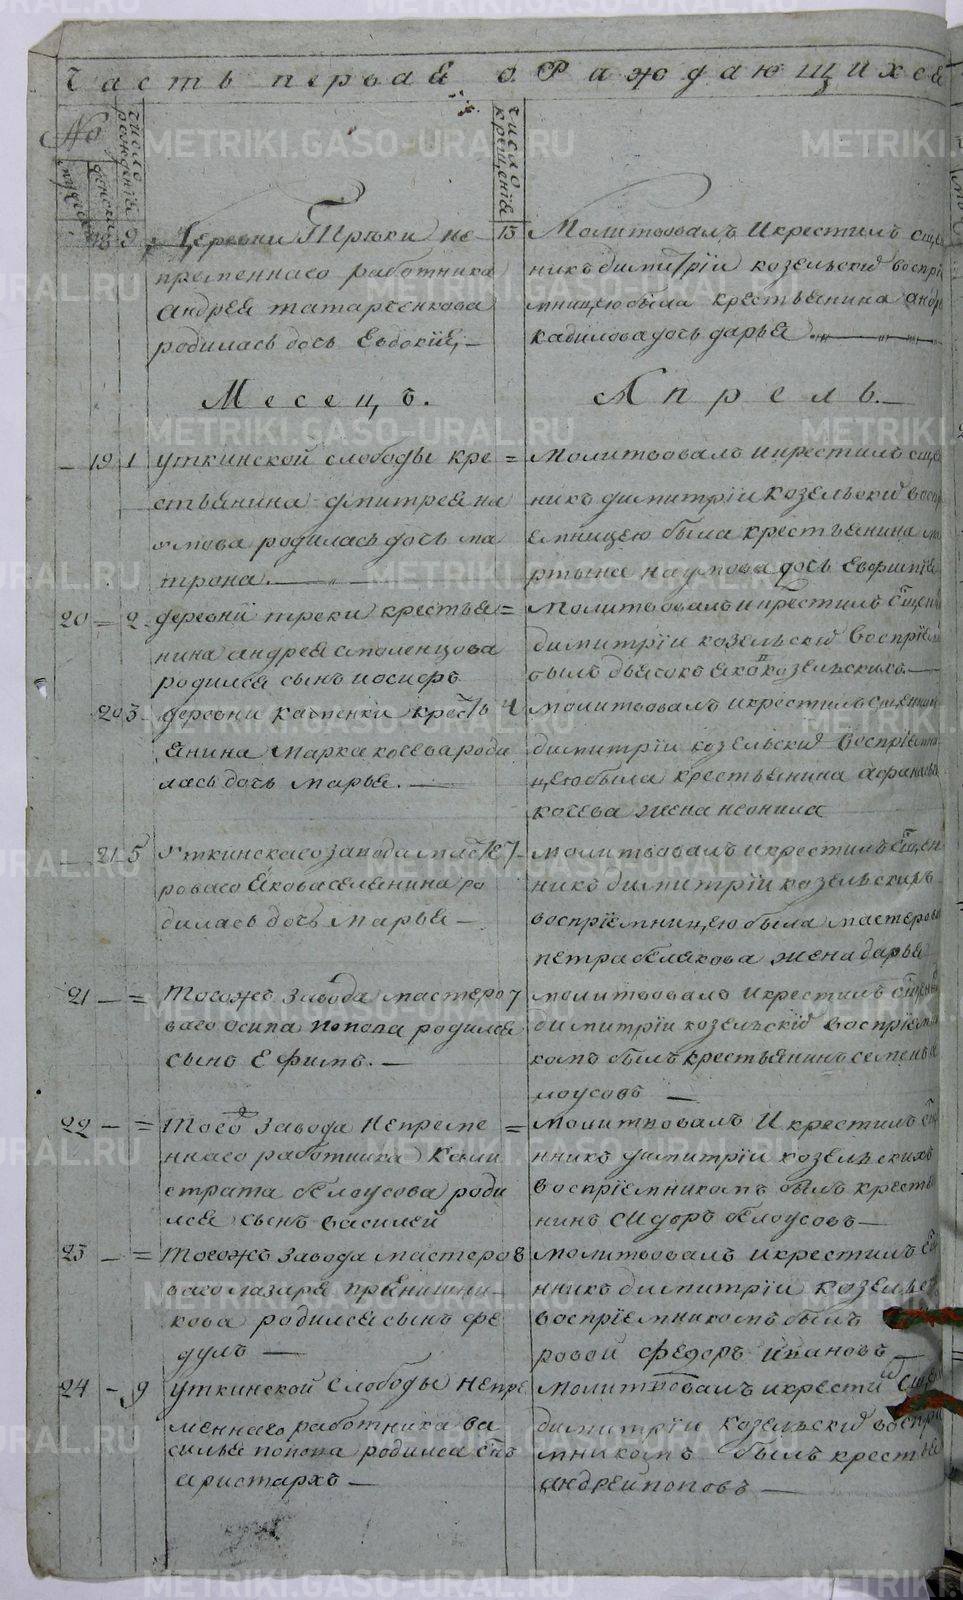 Часть первая о Раждающихся
№
число рождения
мужеска
женска
число крещения
18 9 Деревни Трѣки не
пременнаго работника
андрея татарченкова
родилась дочь Евдокия,
15 Молитвовалъ И крестилъ
никъ димитрїи козельский воспрї
мницею была крестьянина
кадилова дочь дарья.
Месецъ.
Апрель.
19 1 уткинской слободы кре
стьянина дмитрея на
умова родилась дочь ма
трона.
= Молитвовалъ и крестилъ
никъ димитрїи козельский
емницею была крестьянина ма
ртына наумова дочь Евфимия
20 = 2 деревни треки крестья
нина андрея смоленцова
родился сынъ иосифъ
= Молитвовалъ и крестилъ
димитрїи козельский Восприем
былъ дьячокъ яковъ козельскихъ.
20 3 деревни каменки кресть
янина марка косева роди
лась дочь марья.
4 молитвовалъ и крестилъ
димитрїи козельский восприемни
цею была крестьянина афанасья
косева жена неонила
21 5 Уткинскаго завода масте
роваго Якова селенина ро
дилась дочь марья
7 молитвовалъ и крестилъ
никъ димитрїи козельскихъ
восприемницею была мастерова
петра белякова жена дарья
21 = Тогожъ завода мастеро
ваго осипа попова родился
сынъ Ефимъ.
7 молитвовалъ И крестилъ
димитрїи козельский восприем
комъ былъ крестьянинъ семенъ
лоусовъ
22 = Того завода Непреме
ннаго работника Кали
страта белоусова роди
лся сынъ василей
= молитвовалъ И крестилъ
нникъ димитрїи козельскихъ
восприемникомъ былъ кресть
нинъ Сидоръ белоусовъ
23 = Тогожъ завода мастеро
ваго лазаря пряничник
кова родился сынъ фе
дулъ
8 молитвовалъ И крестилъ
нникъ димитрїи козельс
восприемникомъ былъ
ровой Федоръ Ивановъ
24 9 уткинской слободы Непре
меннаго работника ва
силья попова родился
аристархъ
Молитвовалъ и крести
димитрїи козельский воспри
мникомъ былъ крестья
андрей поповъ
METRIKI.GASO-URAL.RU